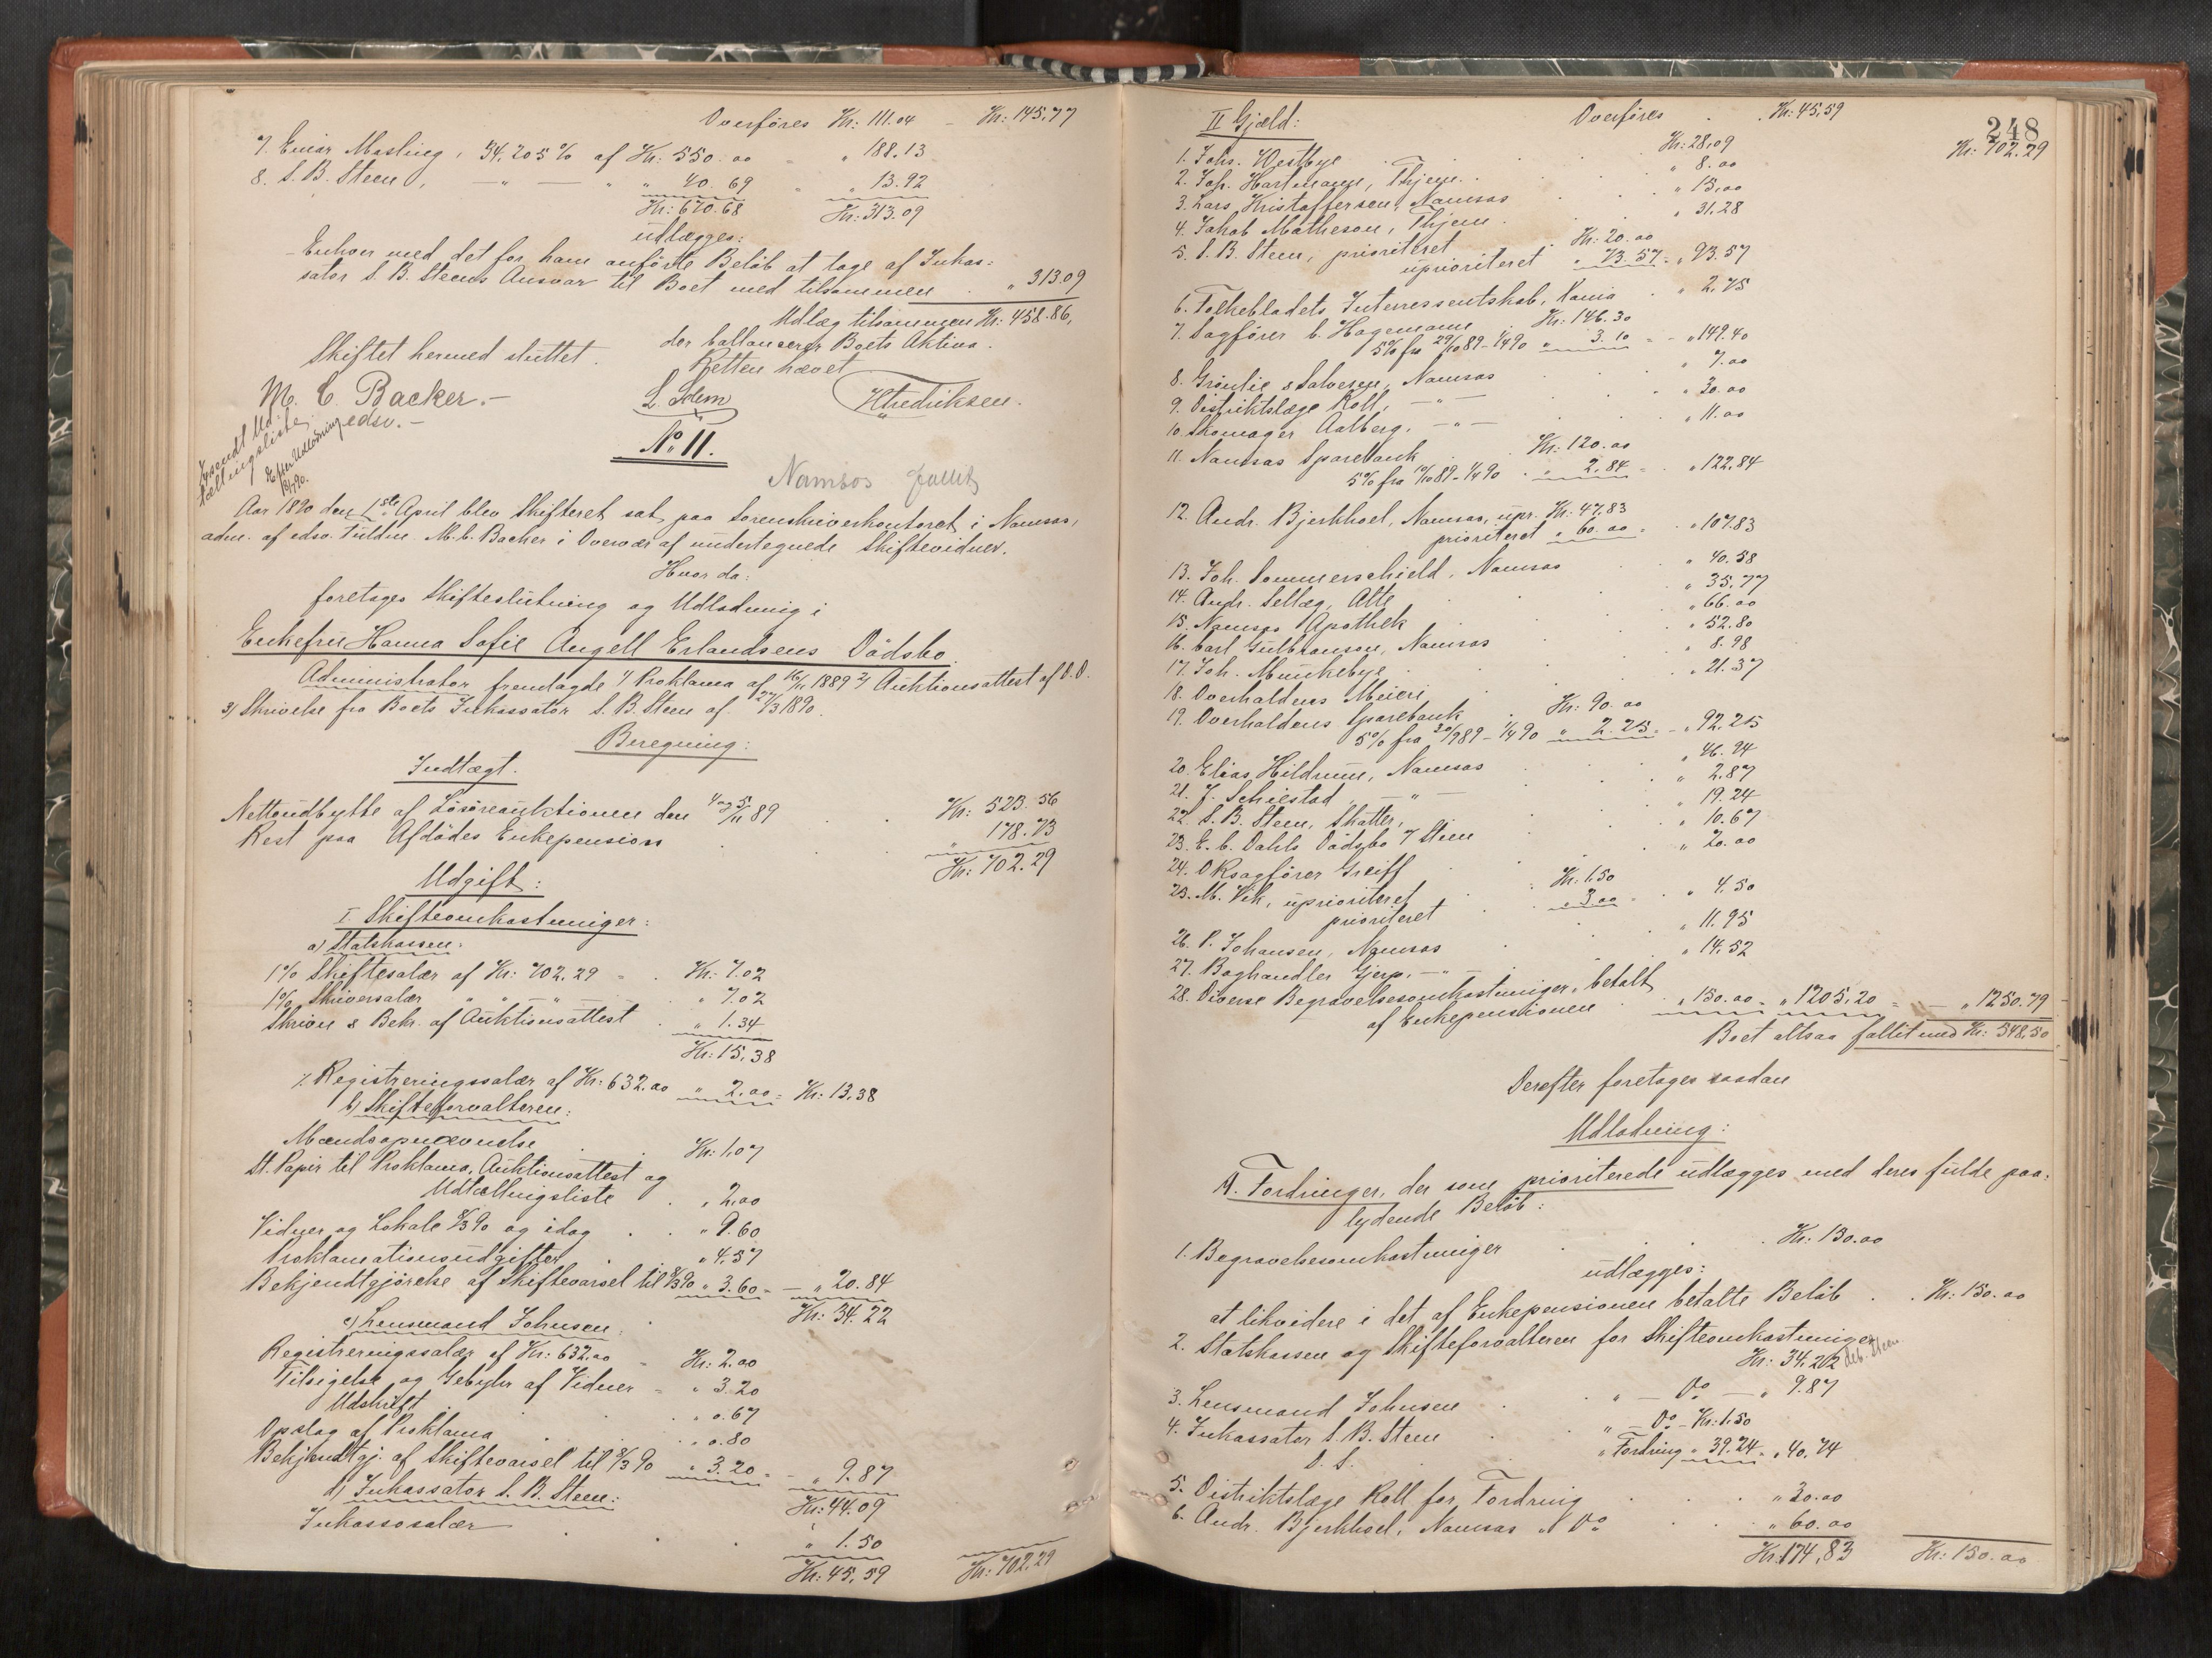 Overføres Kr: 111.04 - Kr: 145.77
7. Einar Masling, 34.205 % af Kr: 550.00 - " 188.13
8. S. B. Steen, —"— " " 40.69 " " 13.92
Kr: 670.68 Kr: 313.09
udlægges:
Enhver med det for ham anførte Beløb at tage af Inkas-
sator S. B. Steens Ansvar til Boet med tilsammen . " 313.09
Udlæg tilsammen Kr: 458.86,
der ballancerer Boets Aktiva.
Skiftet hermed sluttet. Retten hævet
M. C. Backer.-
edsv.-
No 11.
Namsos fallit
Aar 1890 den 1ste April blev Skifteret sat paa Sorenskriverkontoret i Namsos,
adm. af edsv. Fuldm. M. C. Backer i Overvær af undertegnede Skiftevidner.
Hvor da:
foretoges Skifteslutning og Udlodning i
Enkefru Hanna Sofie Angell Erlandsens Dödsbo.
Administrator fremlagde 1) Proklama af 16/11 1889 2) Auktionsattest af D.D.
3) Skrivelse fra Boets Inkassator S. B. Steen af 27/3 1890.
Beregning:
Indtægt.
Nettoudbytte af Løsøreauktionen den 4 og 5/11 89 . . Kr: 523.56
Rest paa Afdödes Enkepension . . " 178.73
Kr: 702.29
Udgift:
I Skifteomkostninger:
a) Statskassen:
1% Skiftesalær af Kr: 702.29 = . Kr: 7.02
1% Skriversalær " " —"— " 7.02
Skriver & Bekr. af Auktionsattest . " 1.34
Kr: 15.38
⁒ Registreringssalær af Kr: 632.00 " 2.00 = Kr: 13.38
b) Skifteforvalteren:
Mandsopnævnelse . . Kr: 1.07
St. Papir til Proklama, Auktionsattest og
Udtællingsliste . " 2.00
Vidner og Lokale 8/3 90 og idag . . " 9.60
Proklamationsudgifter . . " 4.57
Bekjendtgjörelse af Skiftevarsel til 8/3 90 " 3.60 = — " 20.84
Kr: 34.22
c) Lensmand Johnsen:
Registreringssalær af Kr: 632.00 = Kr: 2.00
Tilsigelse og Gebyhr af Vidner = " 3.20
Udskrift . . " 0.67
Opslag af Proklama . . " 0.80
Bekjendtgj. af Skiftevarsel til 8/3 90 " 3.20 = — " 9.87
Kr: 44.09
d) Inkassator S. B. Steen:
Inkassosalær . . " 1.50
Kr: 45.59 Kr: 702.29
248
Overføres . . Kr: 45.59 Kr: 702.29
II Gjæld:
1. Johs. Westbye . . Kr: 28.09
2. Joh. Hartmann, Thjem . . " 8.00
3. Lars Kristoffersen, Namsos . " 15.00
4. Jakob Matheson, Thjem . . " 31.28
5. S. B. Steen, prioriteret . Kr: 20.00
uprioriteret " 73.57 = " 93.57
6. Folkebladets Interressentskab, Kania . " 2.75
7. Sagfører C. Hagemann . Kr: 146.30
5% fra 29/10 89 - 1/4 90 " 3.10 = - " 149.40
8. Grönlie & Salvesen, Namsos . . " 7.00
9. Distriktslæge Roll, —"— . . " 30.00
10. Skomager Aalberg, —"— . . " 11.00
11. Namsos Sparebank . Kr: 120.00
5% fra 12/10 89 - 1/4 90 . " 2.84 = . " 122.84
12. Andr. Bjerkhoel, Namsos, upr. Kr: 47.83
prioriteret " 60.00 = . " 107.83
13. Joh. Sommerschield, Namsos . " 40.58
14. Andr. Sellæg, Alte . " 35.77
15. Namsos Apothek . " 66.00
16. Carl Gulbranson, Namsos . " 52.80
17. Joh. Munkebye . . " 8.98
18. Overhaldens Meieri . . " 21.37
19. Overhaldens Sparebank . Kr: 90.00
5% fra 30/9 89 - 1/4 90 " 2.25 = - " 92.25
20. Elias Hildrum, Namsos . " 46.94
21. J. Schiestad, —"— . " 2.87
22. S. B. Steen, Skatter, . " 19.24
23. E. C. Dahls Dödsbo v/ Steen . " 10.67
24. ORsagfører Greiff . " 20.00
25. M. Vik, uprioriteret . Kr: 1.50
prioriteret . " 3.00 = . " 4.50
26. P. Johansen, Namsos . " 11.95
27. Boghandler Gjerp, —"— . " 14.52
28. Diverse Begravelsesomkostninger, betalt
af Enkepensionen . " 150.00 = " 1205.20 = — " 1250.79
Boet altsaa fallit med Kr: 548.50
Derefter foretoges saadan
Udlodning:
A. Fordringer, der som prioriterede udlægges med deres fulde paa-
lydende Beløb:
1. Begravelsesomkostninger . . . Kr: 150.00
udlægges:
at likvidere i det af Enkepensionen betalte Beløb . . Kr: 150.00
2. Statskassen og Skifteforvalteren for Skifteomkostninger
Kr: 34.22 deb. Steen
3. Lensmand Johnsen . " — Do — " 9.87
4. Inkassator S. B. Steen . " — Do - Kr: 1.50
D. S. . " Fordring " 39.24 = " 40.74
5. Distriktslæge Roll for Fordring . . " 30.00
6. Andr. Bjerkhoel, Namsos " Do . . " 60.00
Kr: 174.83 Kr: 150.00